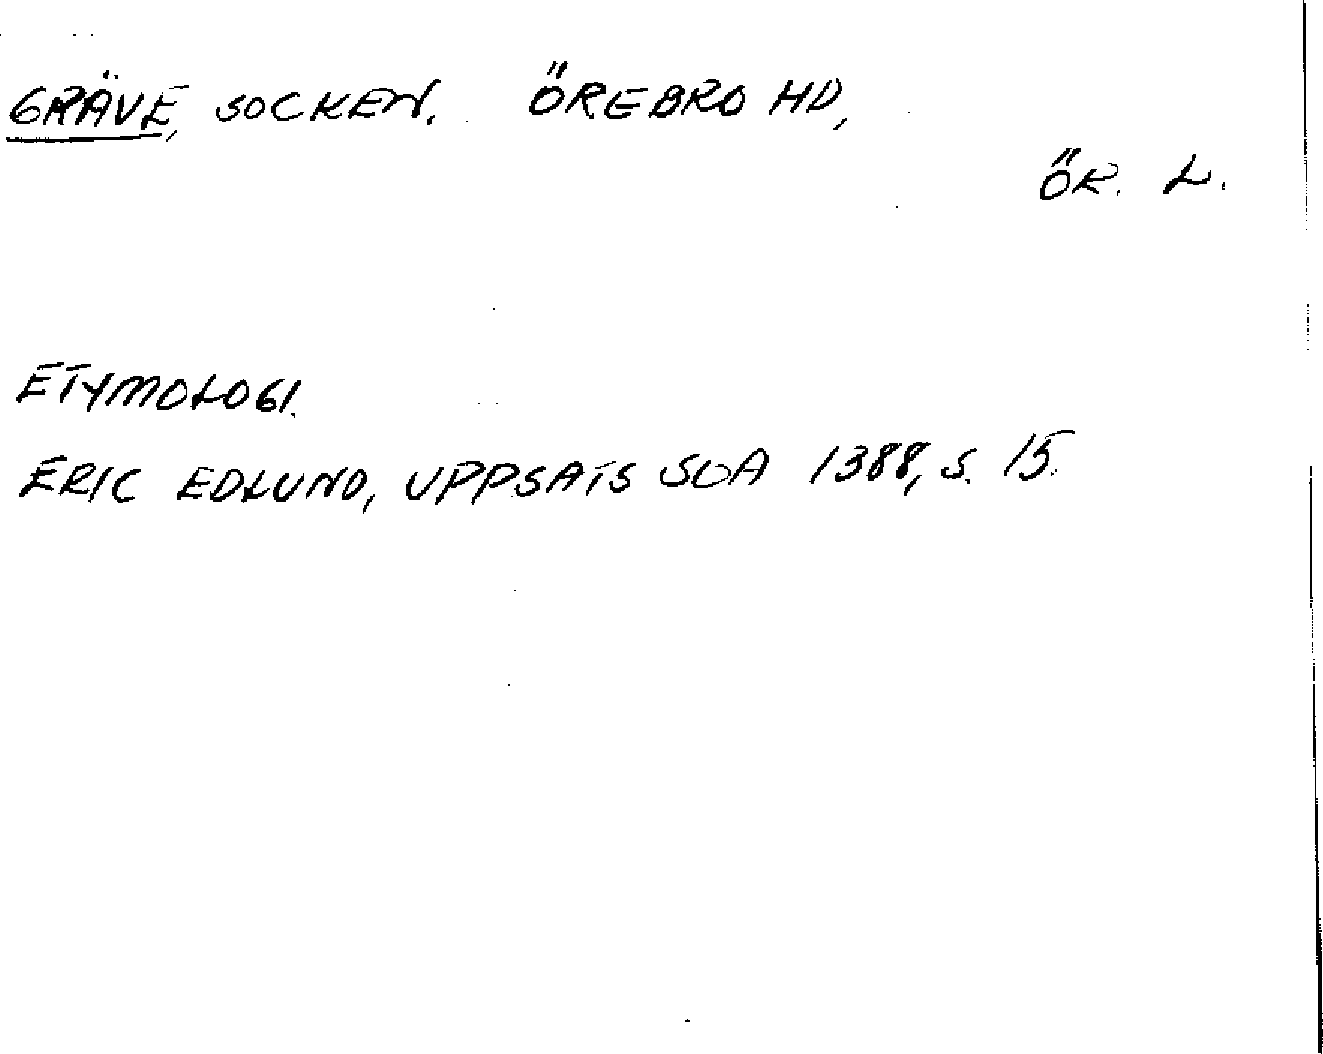 GRÄVE, SOCKEN. ÖREBRO HD,
ÖR. L.
ETYMOLOGI.
ERIC EDLUND, UPPSATS SOA 1388, S. 15.